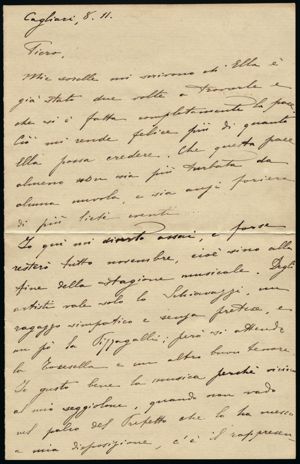 Cagliari, 8. 11.
Piero,
Mie sorelle mi scrivono ch'Ella è
già stato due volte a trovarle e
che si è fatta completamente la pace
Ciò mi rende felice più di quanto
Ella possa credere. Che questa pace
almeno non sia più turbata da
alcuna nuvola, e sia anzi foriera
di più lieti eventi.
Io qui mi diverto assai, e forse
resterò tutto novembre, cioè sino alla
fine della stagione musicale. Degli
artisti vale solo lo Schiavazzi, un
ragazzo simpatico e senza pretese, e
un po' la Pizzagalli; però si attende
la Toresella e un altro buon tenore
Io gusto bene la musica perché vicino
al mio seggiolone, quando non vado
nel palco del Prefetto che lo ha messo
a mia disposizione, c'è il rappresen